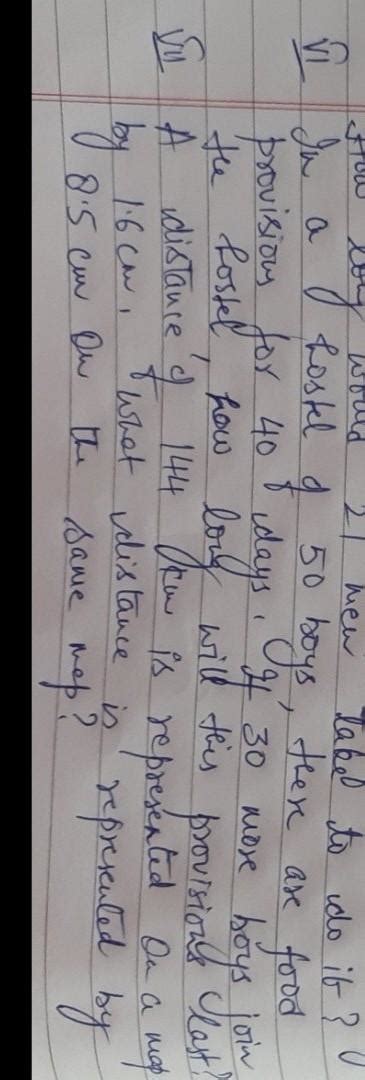 How long would 21 men take to do it?
VI In a hostel of 50 boys, there are food
provisions for 40 days. If 30 more boys join
the hostel, how long will this provisions last?
VII A distance of 144 km is represented on a map
by 1.6 cm. What distance is represented by
8.5 cm on the same map?